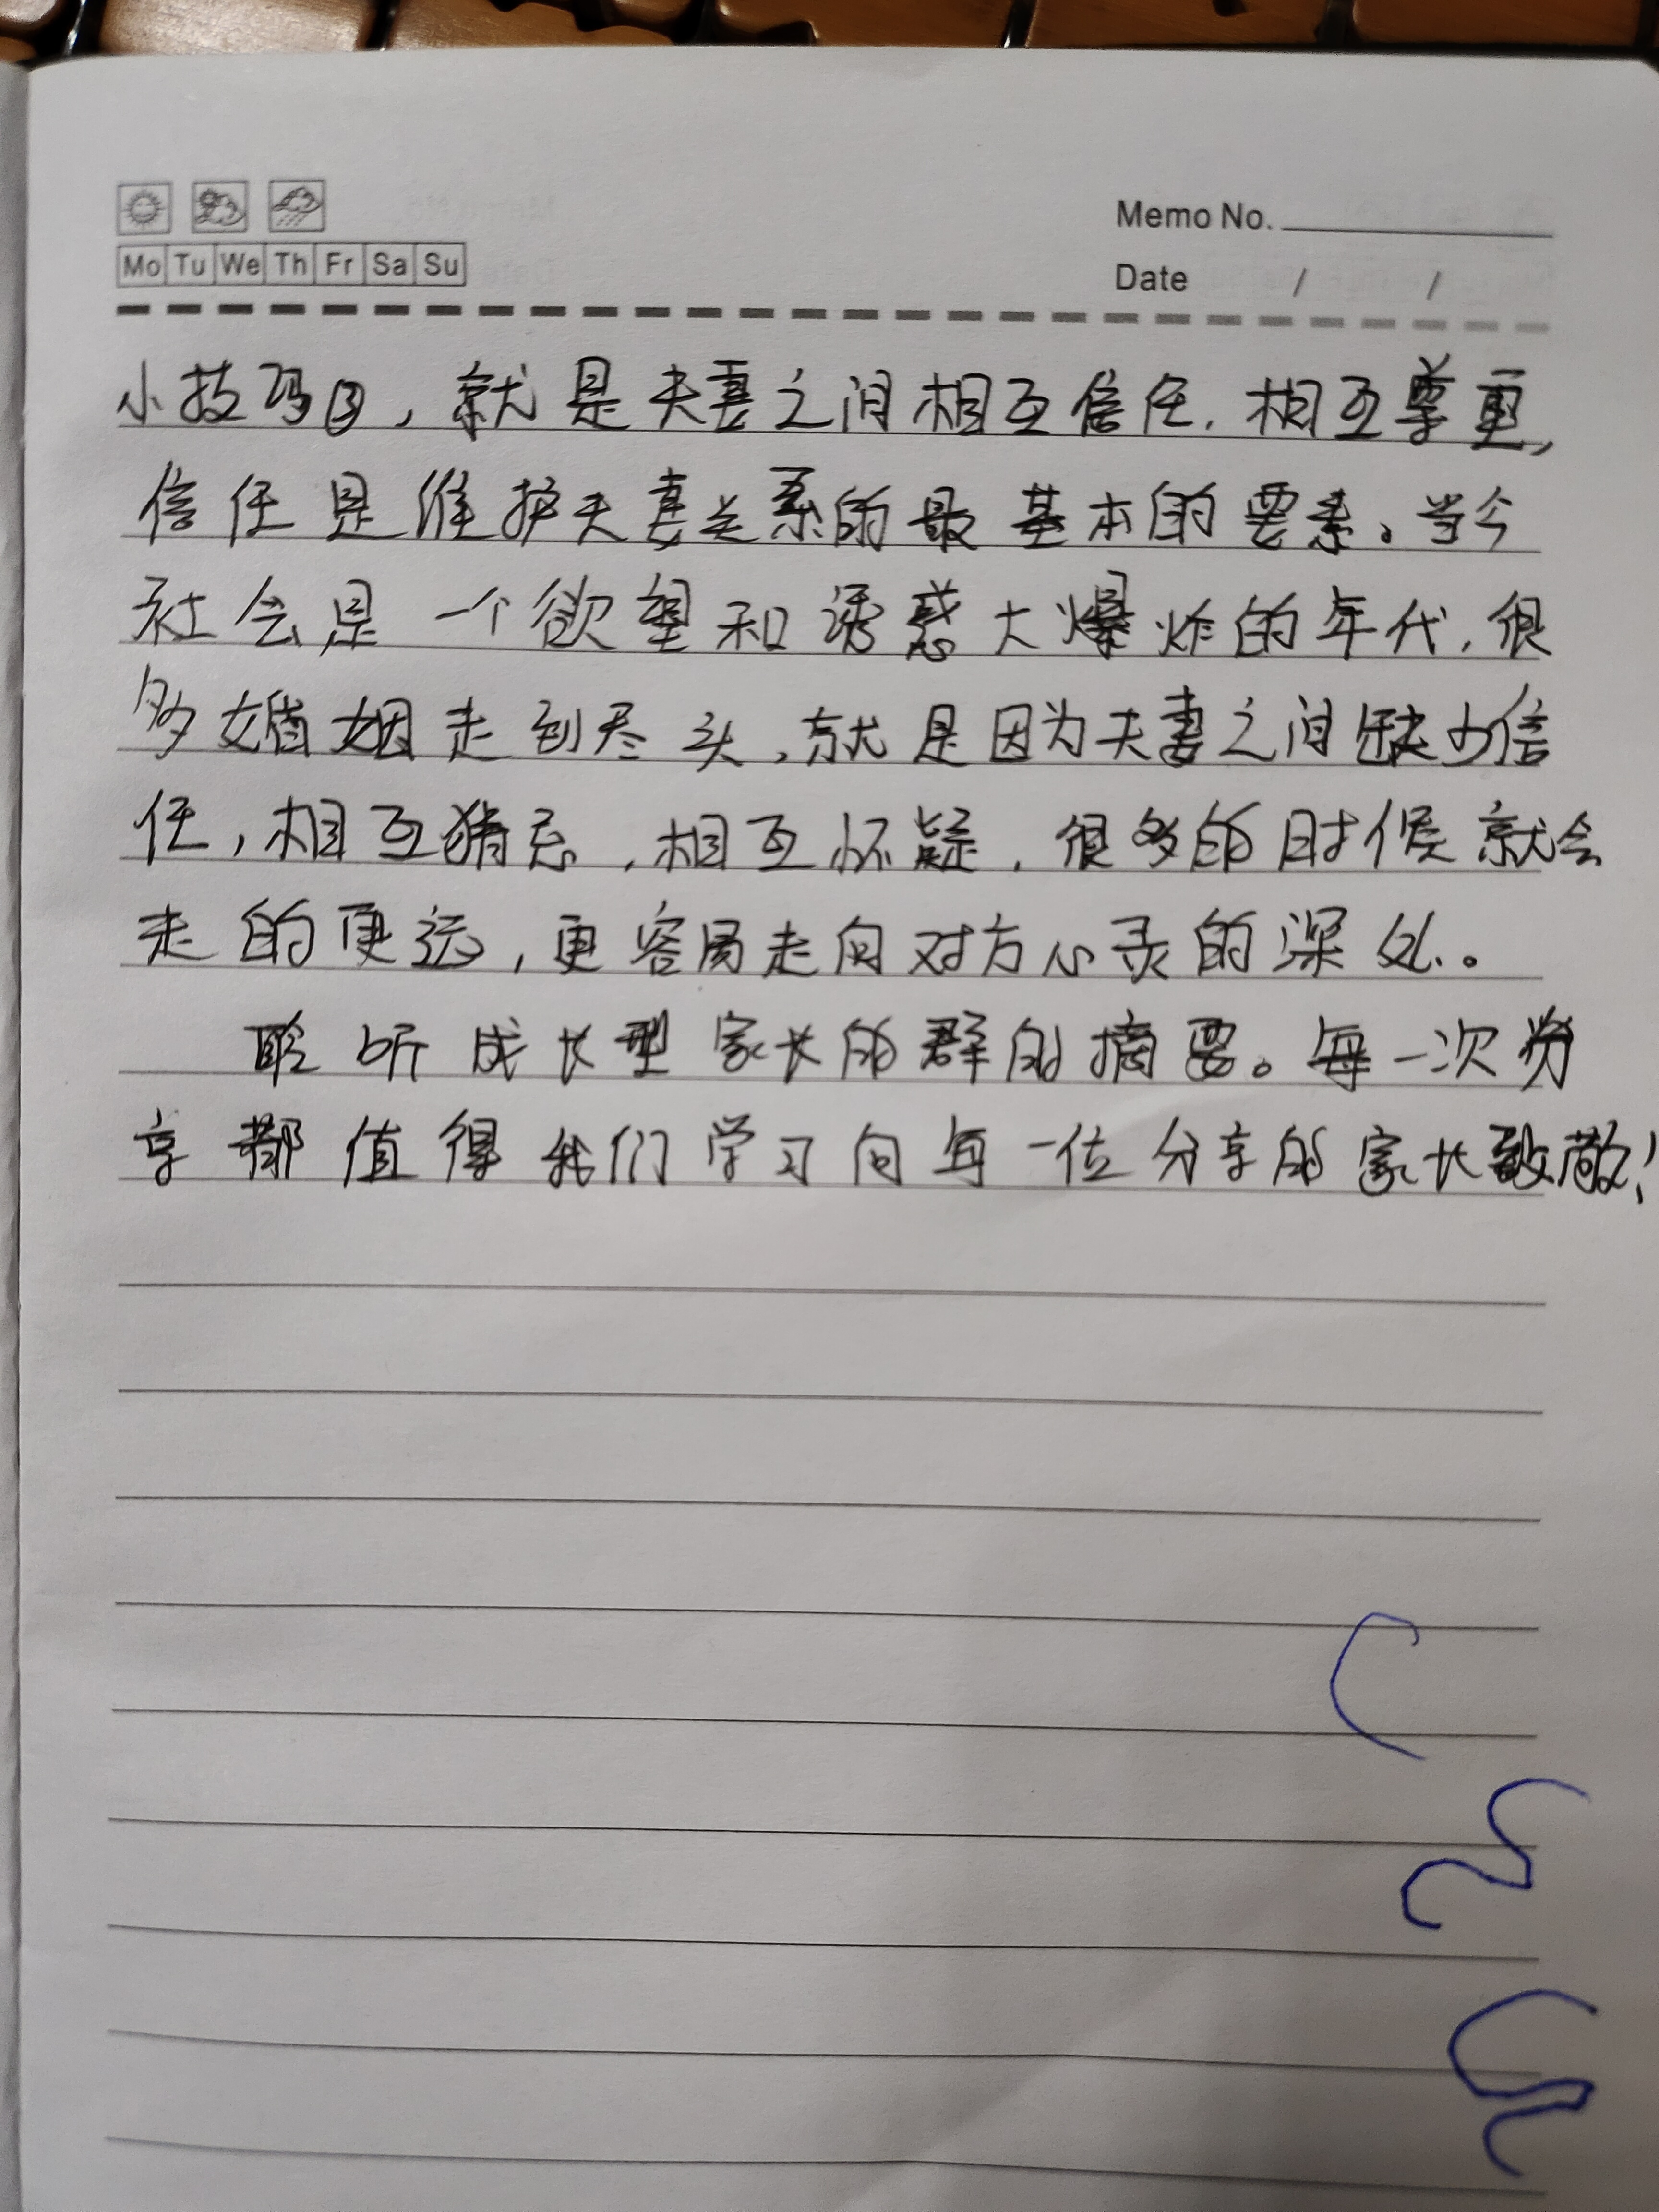 Memo No.
Mo Tu We Th Fr Sa Su
Date / /
小技巧③，就是夫妻之间相互信任，相互尊重，
信任是维护夫妻关系的最基本的要素。当今
社会是一个欲望和诱惑大爆炸的年代，很
多婚姻走到尽头，就是因为夫妻之间缺少信
任，相互猜忌，相互怀疑，很多的时候就会
走的更远，更容易走向对方心灵的深处。
聆听成长型家长的群的摘要。每一次分
享都值得我们学习向每一位分享的家长致敬！